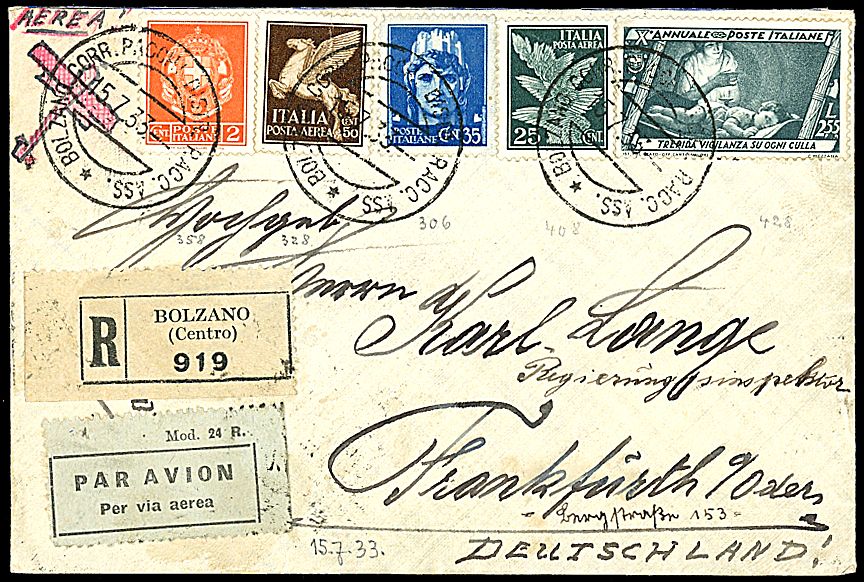 AEREA
CENT. POSTE ITALIANE 2
ITALIA
POSTA AEREA
50 CENT
POSTE
ITALIANE
CENT. 35
ITALIA
POSTA AEREA
25 CENT
Xº ANNUALE POSTE ITALIANE
L. 2,55
TREPIDA VIGILANZA SU OGNI CULLA
BOLZANO CORR. PACCHI RACC. ASS.
15.7.33
RACC. ASS.
BOLZANO
RACC. ASS.
Hochgeb.
358 328 306 408 428
Herrn
Karl Lange
Regierungsinspektor
Frankfürth a/Oder
- Bergstraße 153 -
DEUTSCHLAND!
R
BOLZANO
(Centro)
919
Mod. 24 R.
PAR AVION
Per via aerea
15.7.33.